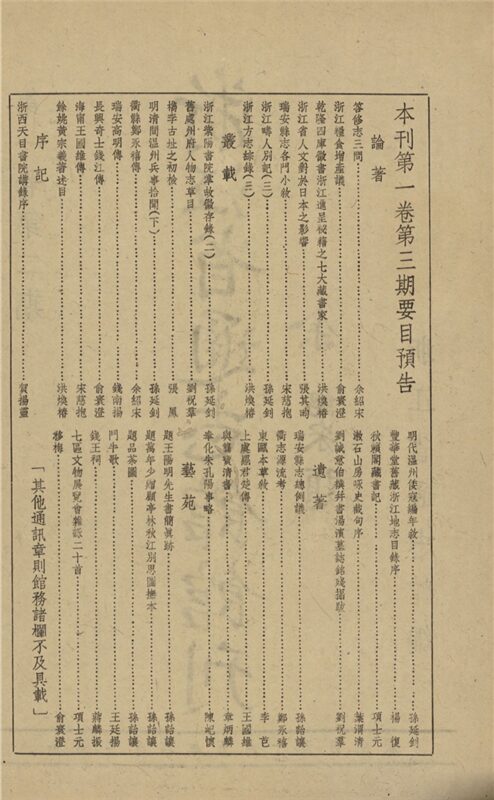 本刊第一卷第三期要目預告
論著
答修志三問 余紹宋
浙江糧食增產議 俞寰澄
乾隆四庫徵書浙江進呈秘籍之七大藏書家 洪煥椿
浙江省人文對於日本之影響 張其昀
瑞安縣志各門小敘 宋慈抱
浙江疇人別記(三) 孫延釗
浙江方志綜錄(三) 洪煥椿
叢載
浙江紫陽書院掌故徵存錄(二) 孫延釗
舊處州府人物志草目 劉祝羣
檇李古址之初檢 張鳳
明清間溫州兵事拾聞(下) 孫延釗
衢縣鄭永禧傳 余紹宋
瑞安高明傳 錢南揚
長興奇士錢江傳 俞寰澄
海甯王國維傳 宋慈抱
餘姚黃宗羲著述目 洪煥椿
序記
浙西天目書院講錄序 賀揚靈
明代溫州倭寇編年敘 孫延釗
豐華堂舊藏浙江地志目錄序 楊復
秋禊閣藏書記 項士元
漱石山房詠史截句序 葉渭清
劉誠意伯撰幷書湯濱墓誌銘殘搨跋 劉祝羣
遺著
瑞安縣志總例議 孫詒讓
衢志源流考 鄭永禧
東甌本草敘 李芑
上虞羅君楚傳 王國維
與龔寶清書 章炳麟
奉化朱孔陽事略 陳訓懷
藝苑
題王陽明先生書簡眞跡 孫詒讓
題萬年少繪顧亭林秋江別思圖撫本 孫詒讓
題品茶圖 孫詒讓
鬥牛歌 王廷揚
錢王祠 蔣麟振
七區文物展覽會雜詠二十首 項士元
移梅 俞寰澄
「其他通訊章則館務諸欄不及具載」